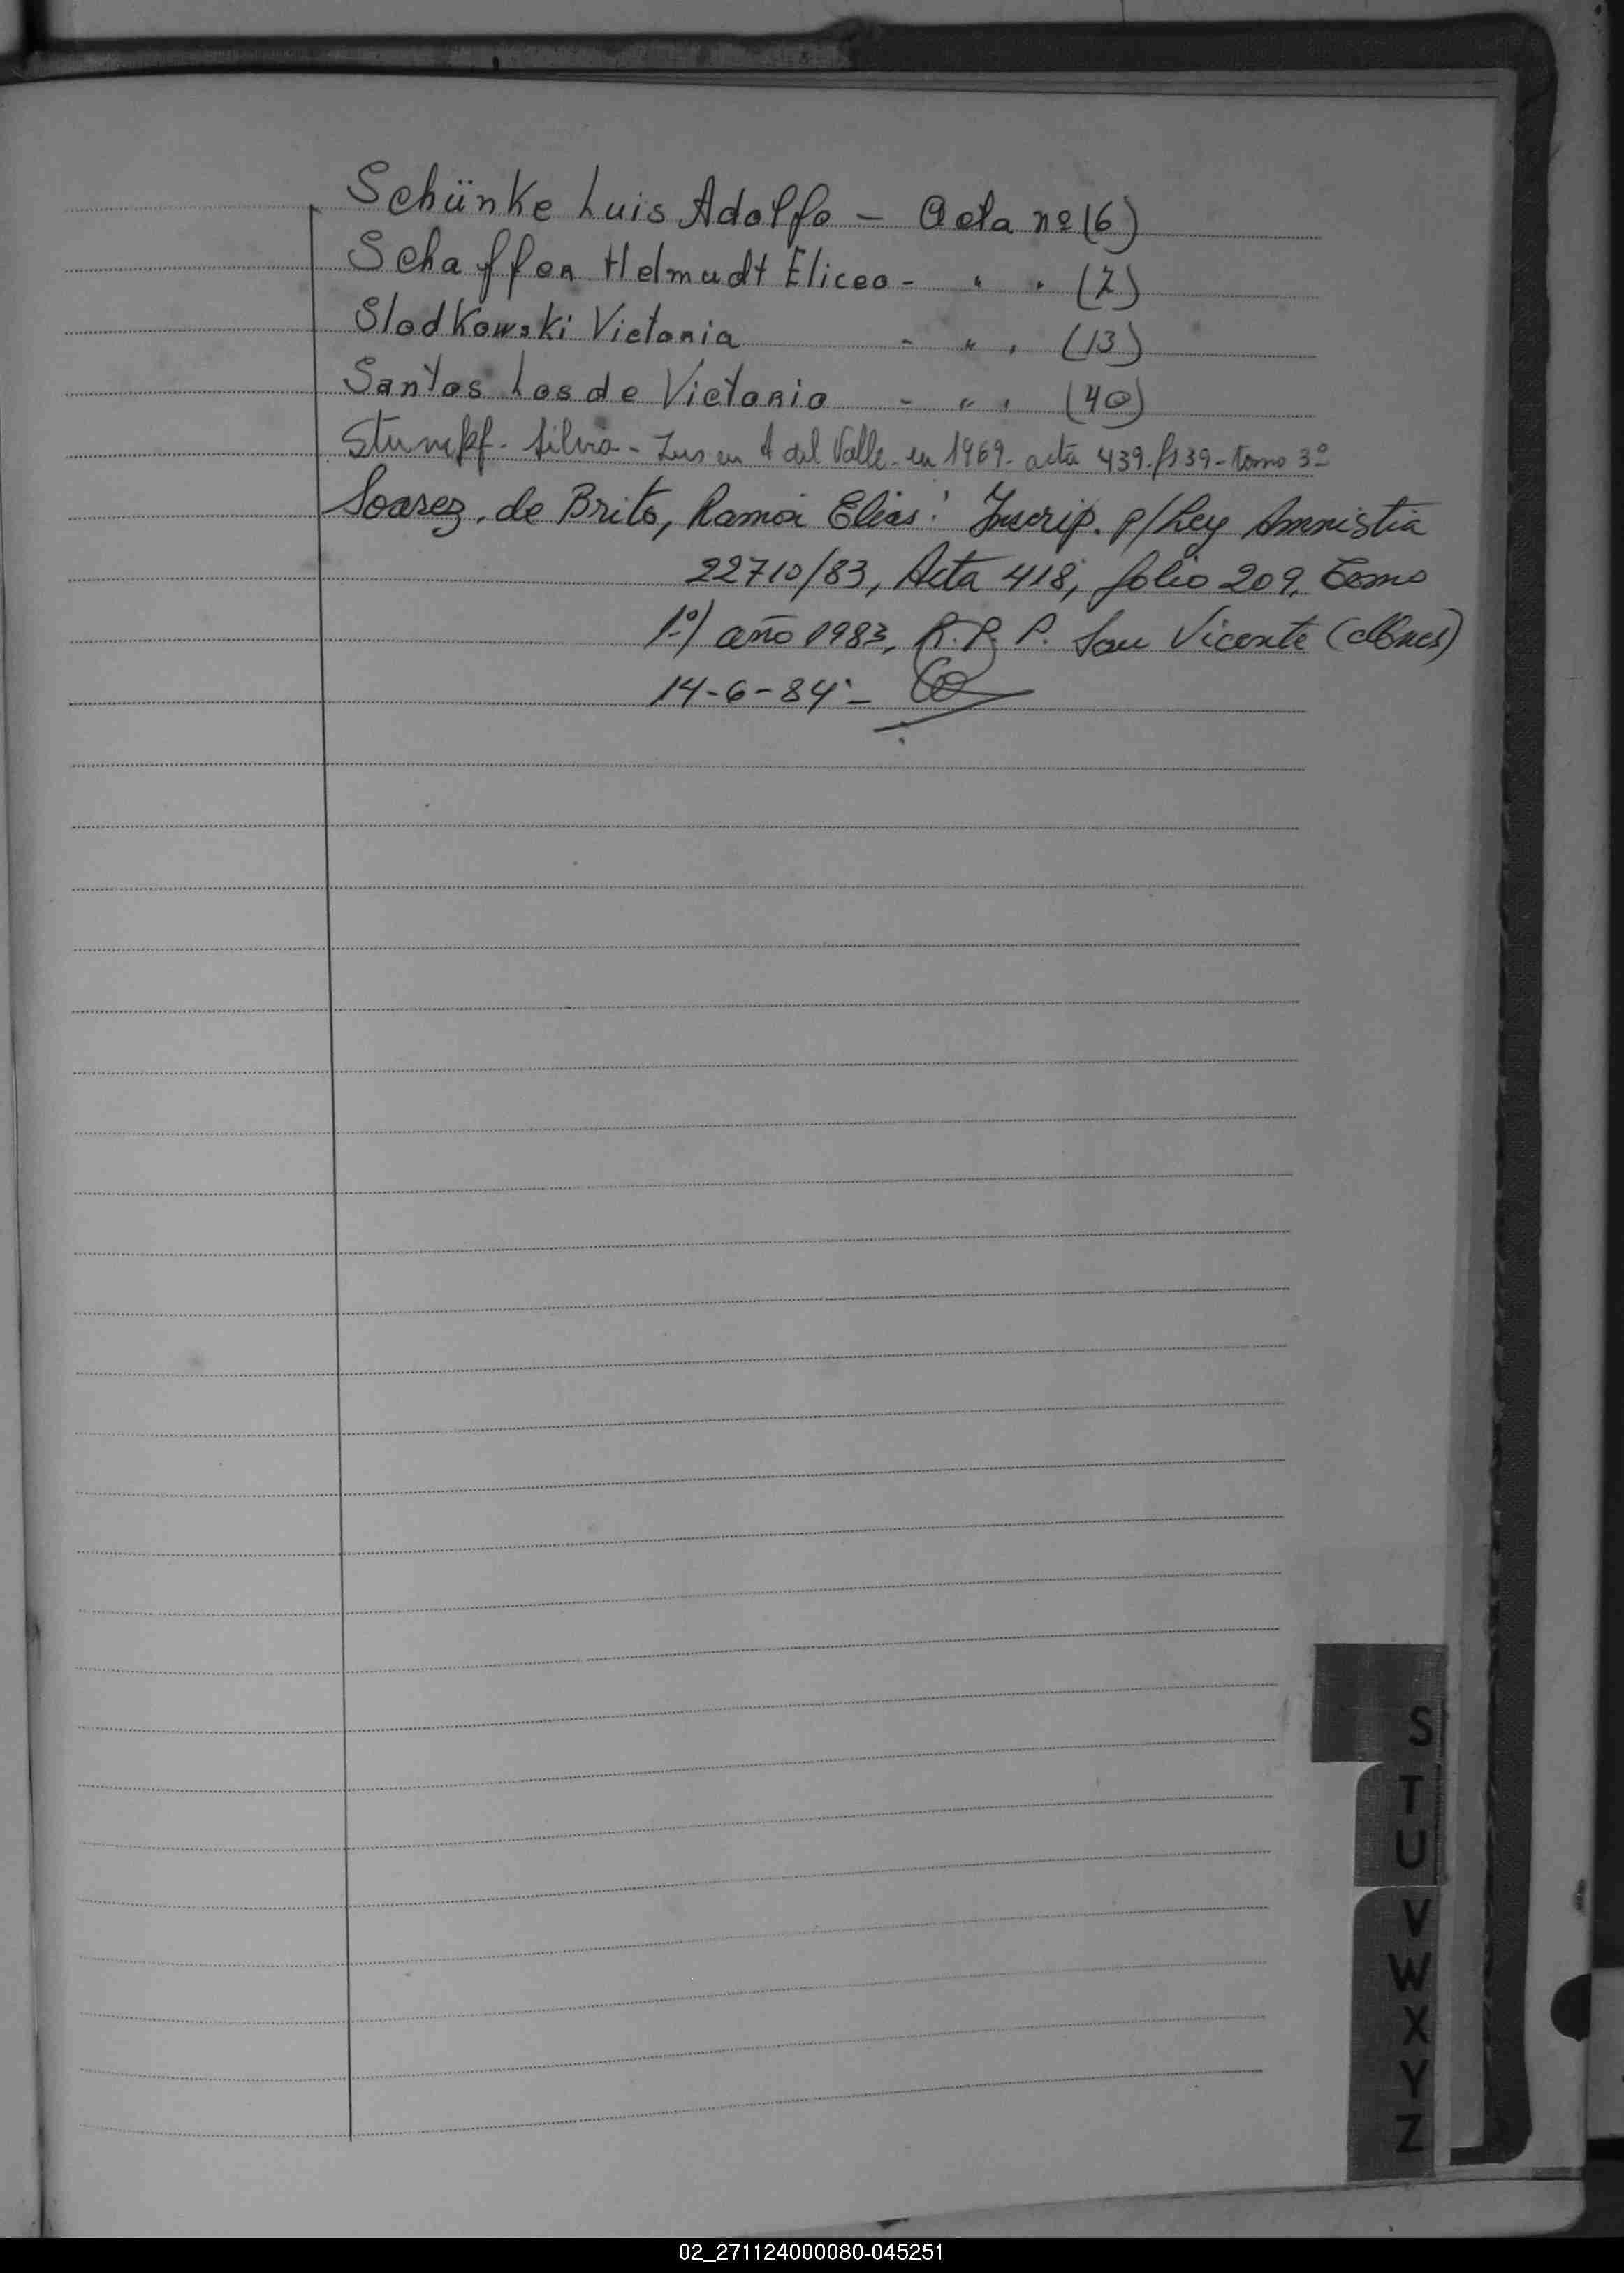 Schünke Luis Adolfo - Acta nº (6)
Schaffer Helmudt Eliceo - " " (7)
Slodkowski Victoria - " " (13)
Santos Los de Victorio - " " (40)
Stumpf - Silvia - Ins en A del Valle - en 1969 - acta 439 - fs 139 - tomo 3º
Soarez, de Brito, Ramón Elias: Inscrip. p/Ley Amnistia
22710/83, Acta 418, folio 209, Tomo
1º) año 1983, R. P. P. San Vicente
14-6-84 -
S
T
U
V
W
X
Y
Z
02_271124000080-045251